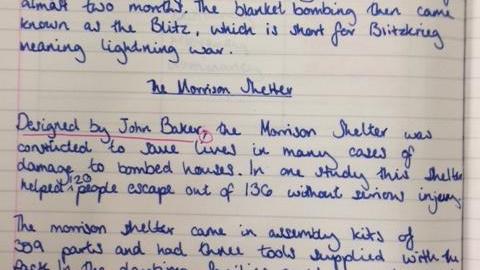 almost two months. The blanket bombing then came
known as the Blitz, which is short for Blitzkrieg
meaning lightning war.
The Morrison Shelter
Designed by John Baker, the Morrison Shelter was
constructed to save lives in many cases of
damage to bombed houses. In one study this shelter
helped 120 people escape out of 136 without serious injury.
The morrison shelter came in assembly kits of
309 parts and had three tools supplied with the
pack. In the daytime